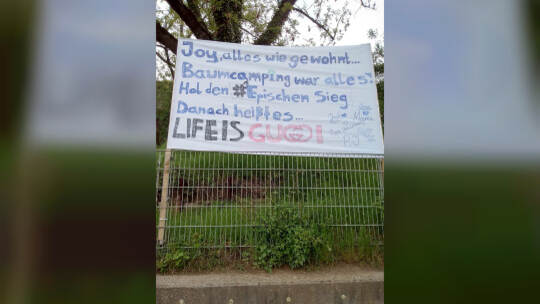 Joy, alles wie gewohnt...
Baumcamping war alles?
Hol den #Epischen Sieg
Danach heißt es...
LIFE IS GUCCI